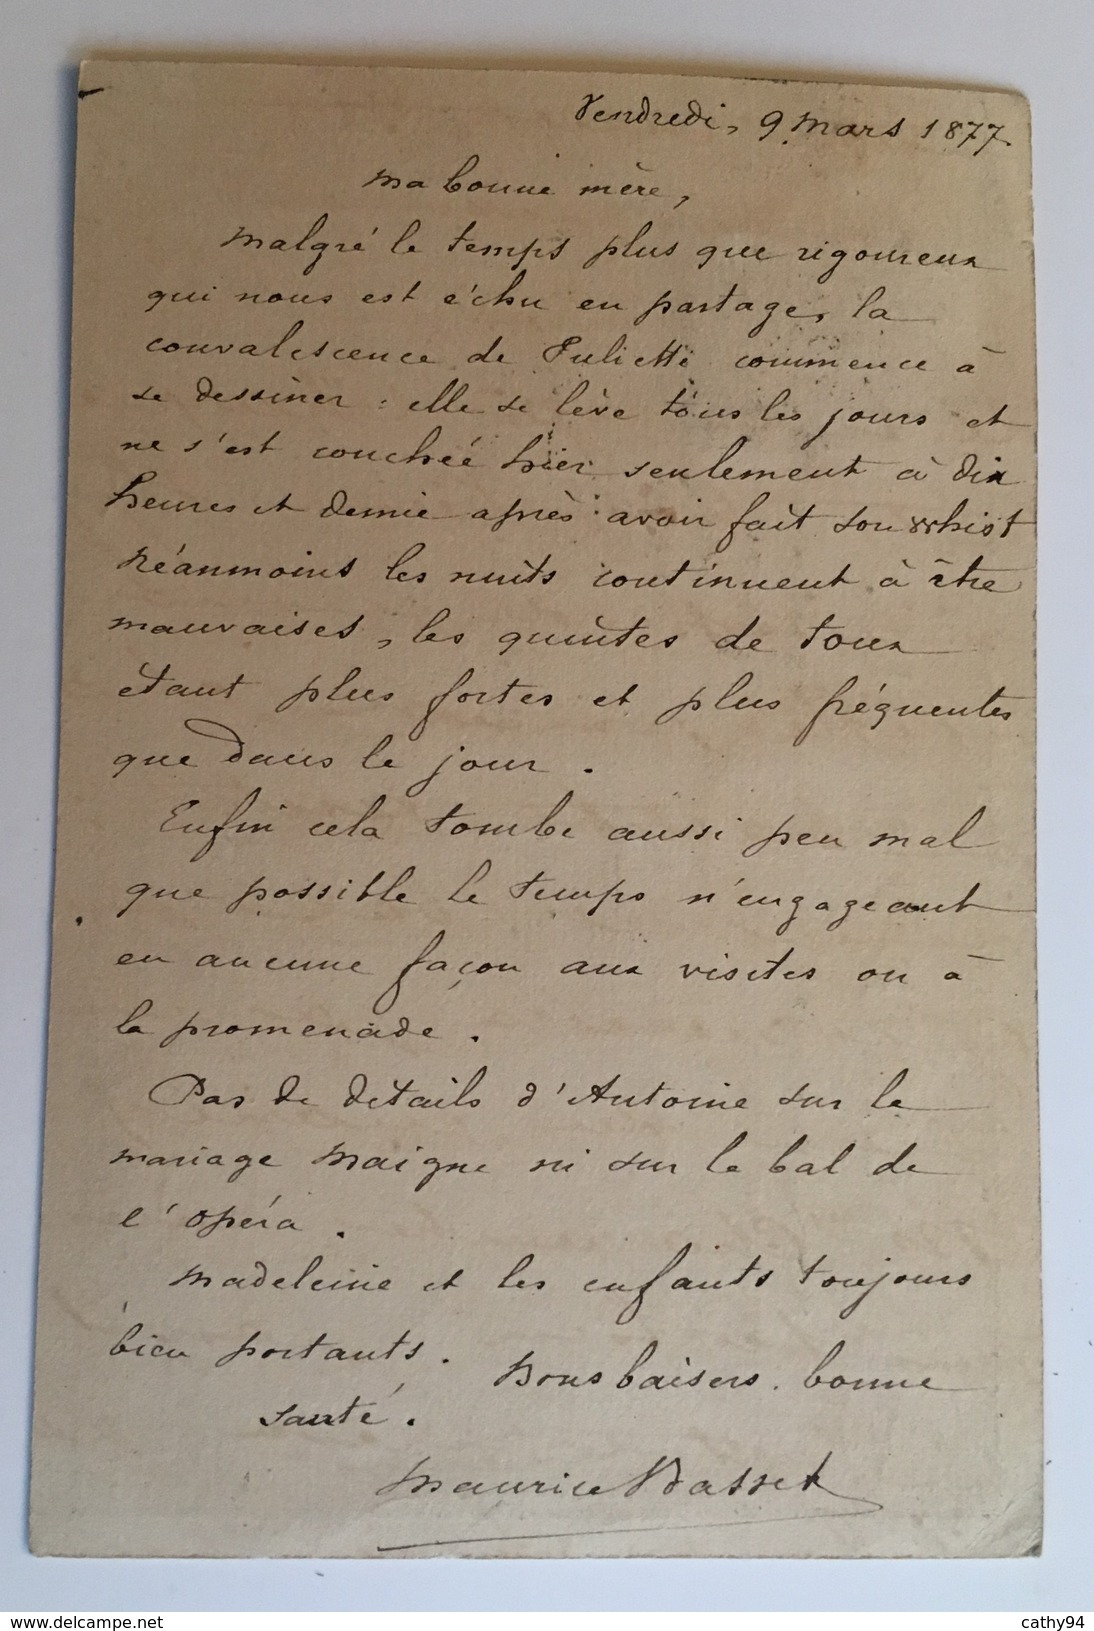 Vendredi, 9 Mars 1877.
Ma bonne mère,
Malgré le temps plus que rigoureux
qui nous est échu en partage, la
convalescence de Juliette commence à
se dessiner : elle se lève tous les jours et
ne s'est couchée hier seulement à dix
heures et demie après avoir fait son whist
Néanmoins les nuits continuent à être
mauvaises, les quintes de toux
étant plus fortes et plus fréquentes
que dans le jour.
Enfin cela tombe aussi peu mal
que possible le temps n'engageant
en aucune façon aux visites ou à
la promenade.
Pas de détails d'Antoine sur le
mariage Maigne ni sur le bal de
l'opéra.
Madeleine et les enfants toujours
bien portants. Bons baisers. bonne
santé.
Maurice Basset
www.delcampe.net
cathy94